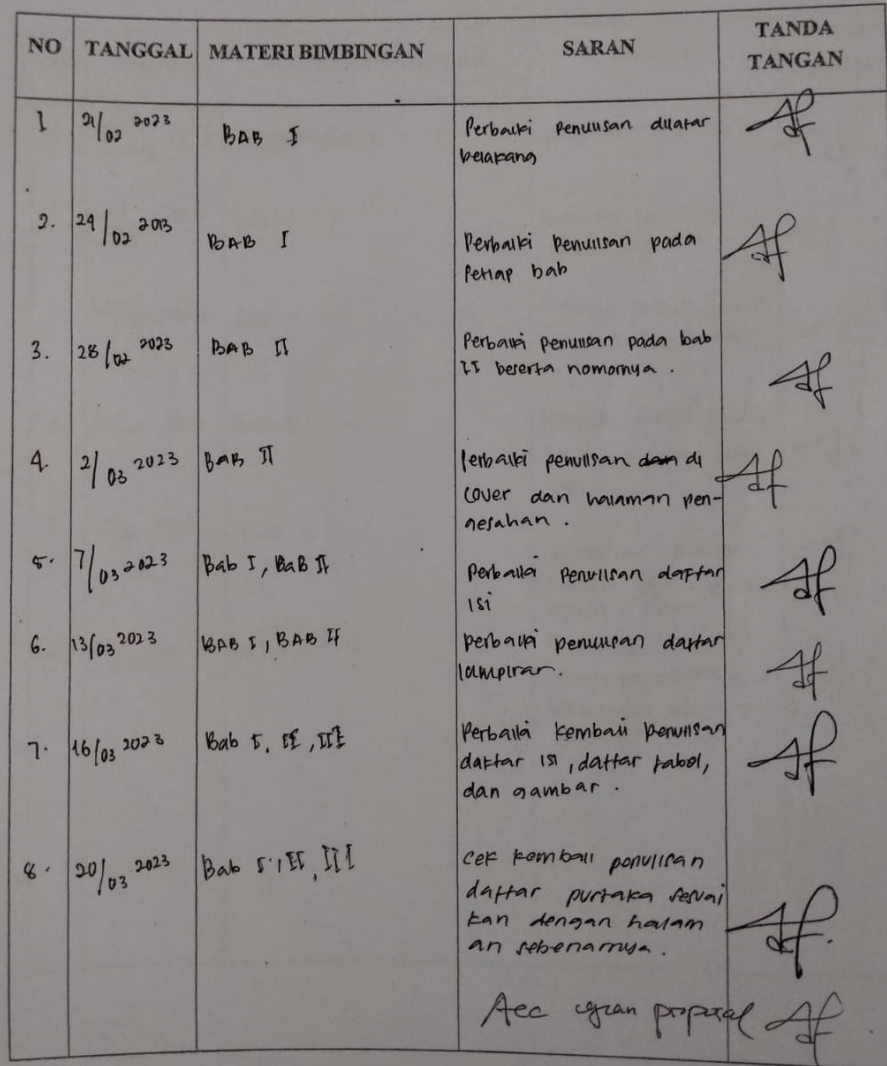 NO TANGGAL MATERI BIMBINGAN SARAN TANDA TANGAN
1 21/02 2023 BAB I Perbaiki Penulisan dilatar
belakang
2. 24/02 2023 BAB I Perbaiki Penulisan pada
setiap bab
3. 28/02 2023 BAB II Perbaiki penulisan pada bab
II beserta nomornya.
4. 2/03 2023 BAB II Perbaiki penulisan di
cover dan halaman pen-
gesahan.
5. 7/03 2023 Bab I, BaB II Perbaiki Penulisan daftar
isi
6. 13/03 2023 BAB I, BAB II perbaiki penulisan daftar
lampiran.
7. 16/03 2023 Bab I, II, III Perbaiki kembali penulisan
daftar isi, daftar tabel,
dan gambar.
8. 20/03 2023 Bab I, II, III Cek kembali penulisan
daftar pustaka sesuai
kan dengan halam
an sebenarnya.
Acc ujian proposal